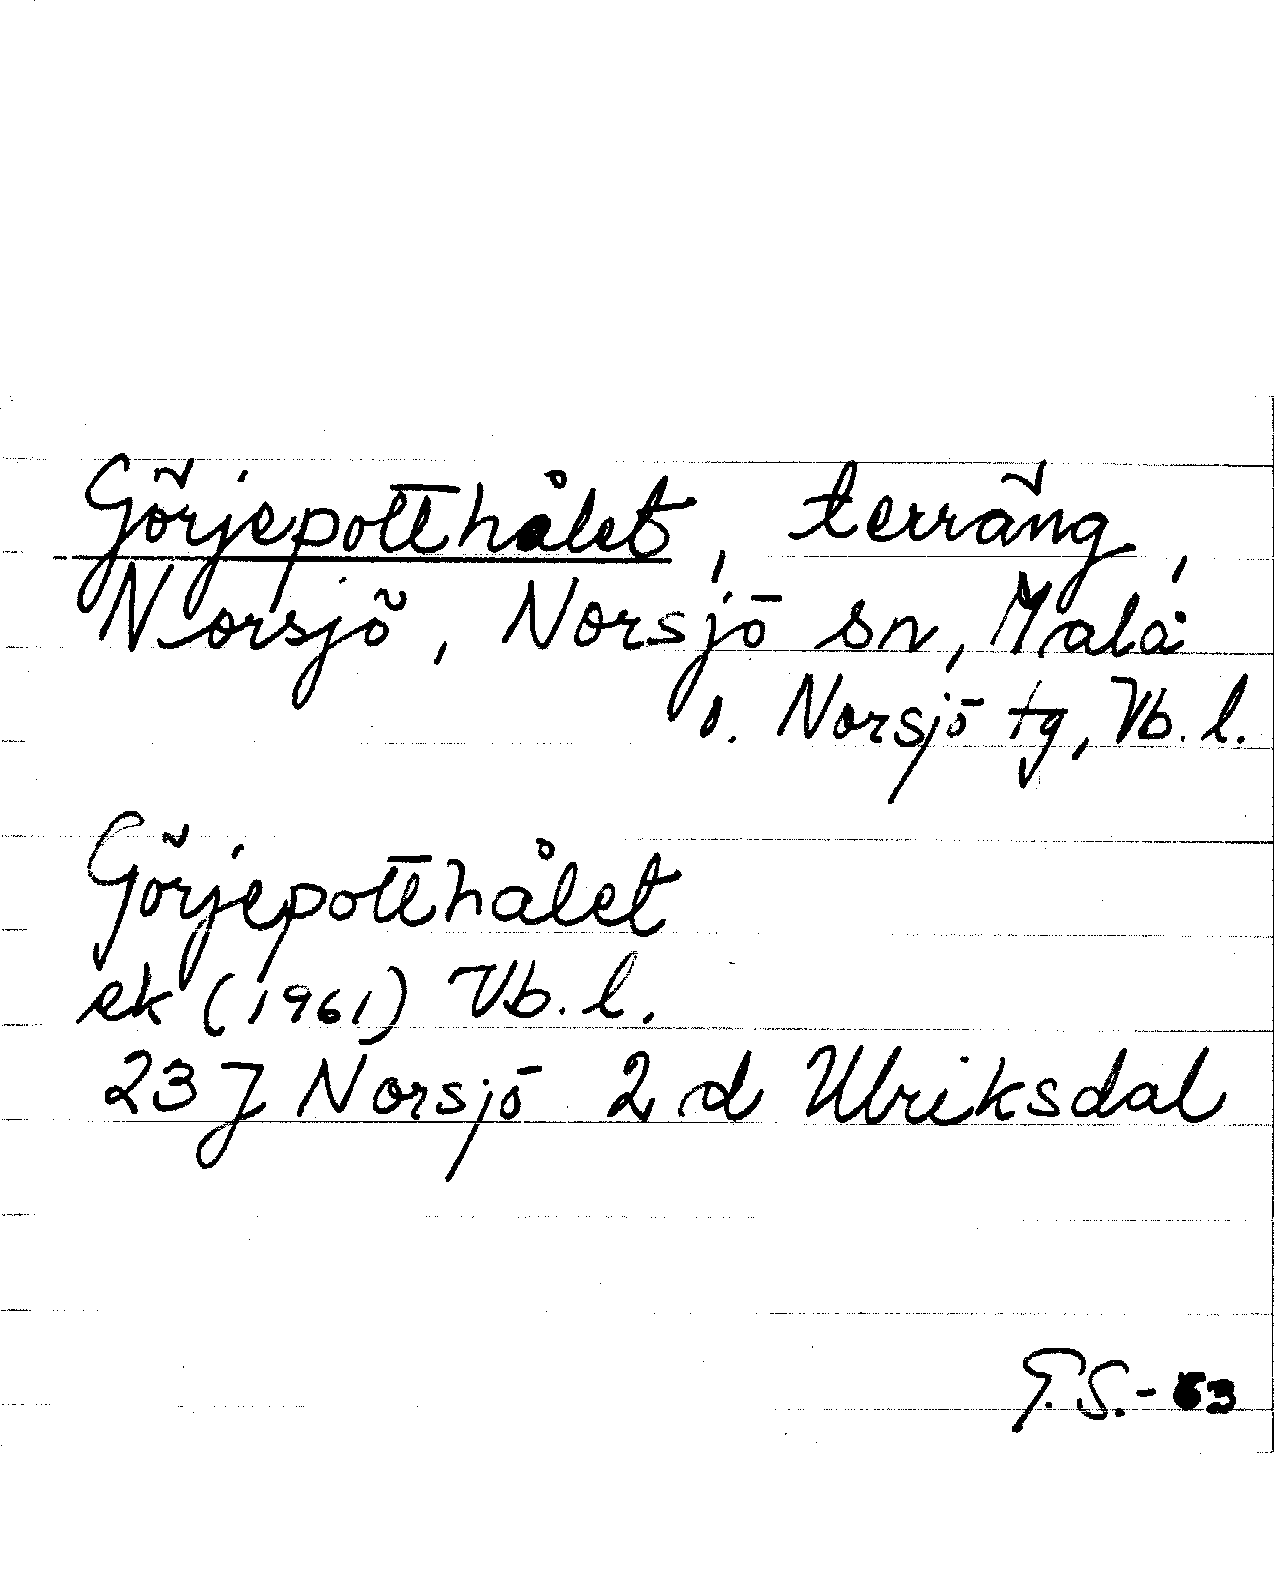 Görjepotthålet, terräng,
Norsjö, Norsjö sn, Malå
o. Norsjö tg, Vb. l.
Görjepotthålet
ek (1961) Vb. l.
23 J Norsjö 2 d Ulriksdal
G.S.-63